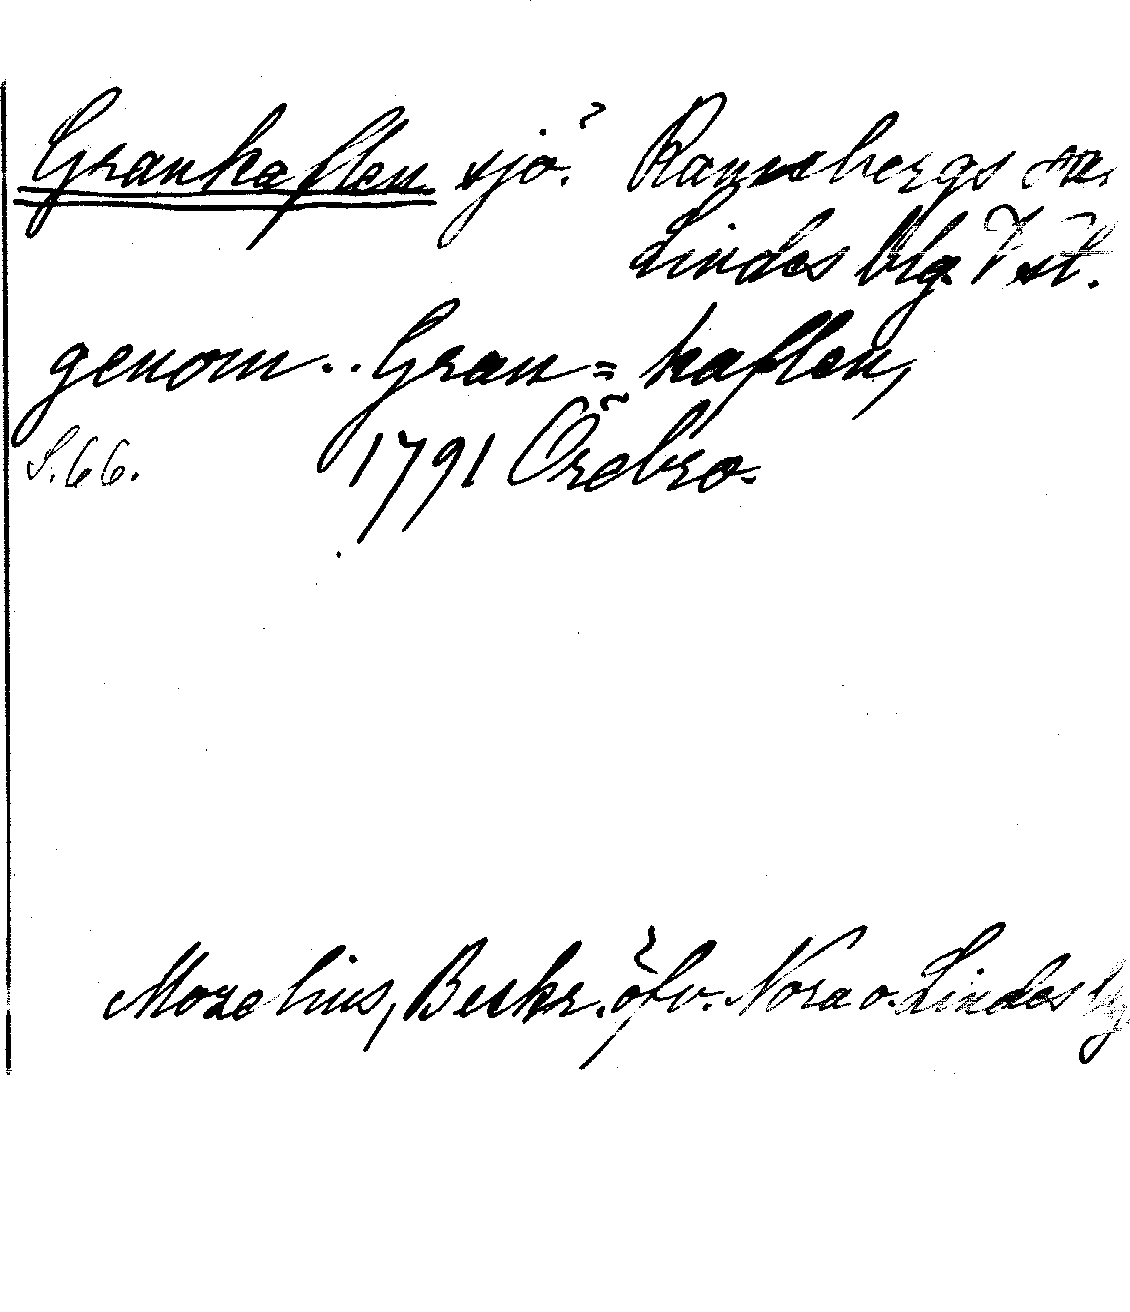 Grankaflen sjö. Ramsbergs sn.
Lindes blg. Vstl.
genom .. Gran = kaflen,
S. 66. 1791 Örebro.
Mozelius, Beskr. öfv. Nora o. Lindes